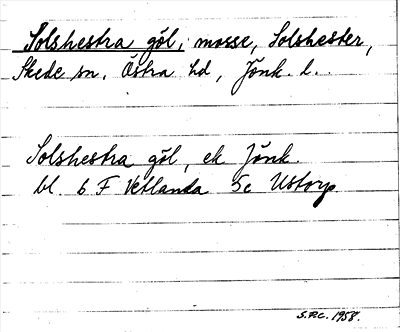 Solshestra göl, mosse, Solshester,
Skede sn, Östra hd, Jönk. l.
Solshestra göl, ek Jönk.
bl. 6 F Vetlanda 5c Ustorp
S.P.C. 1958.